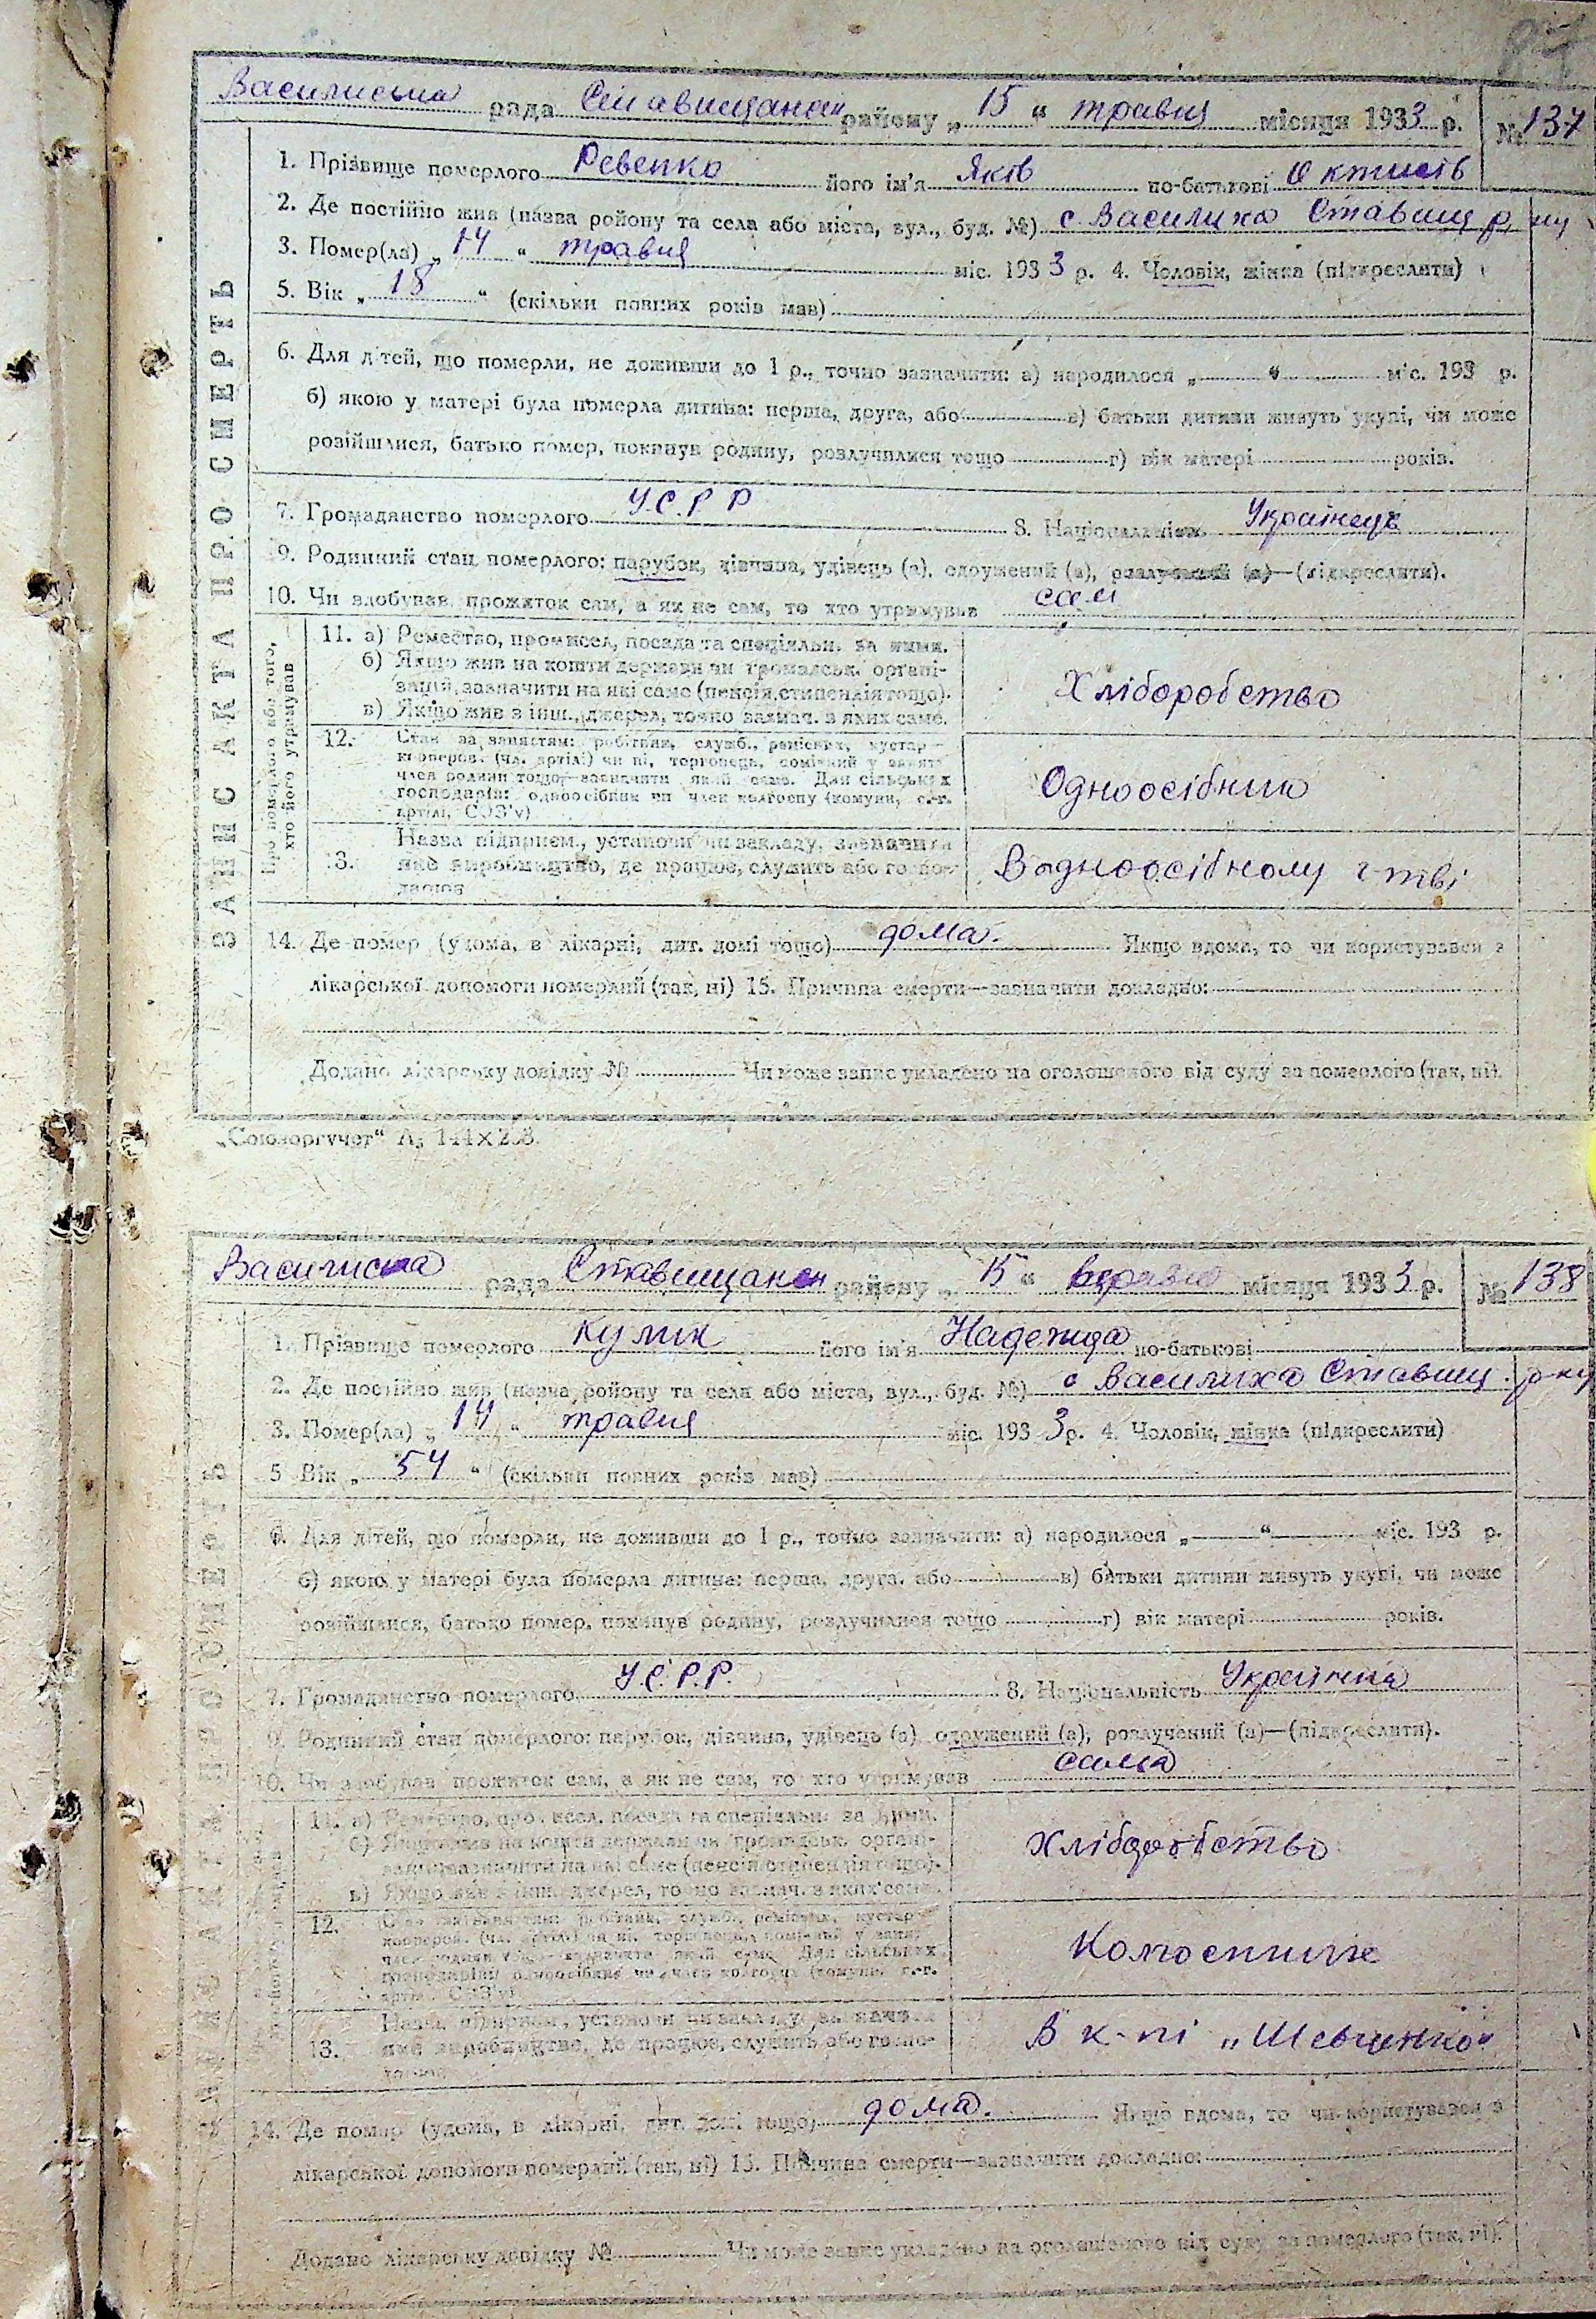 рада районну „ 15 “ травня місяця 1933 р. № 137
ЗАПИС АКТА ПРО СМЕРТЬ
1. Прізвище померлого Ревенко його ім'я Яків по-батькові
2. Де постійно жив (назва району та села або міста, вул., буд. №) с. Василиха Ставищ р-ну
3. Помер(ла) „ 14 “ травня міс. 1933 р. 4. Чоловік, жінка (підкреслити)
5. Вік „ 18 “ (скільки повних років мав)
6. Для дітей, що померли, не доживши до 1 р., точно зазначити: а) народилося „ “ міс. 193 р.
б) якою у матері була померла дитина: перша, друга, або в) батьки дитини живуть укупі, чи може
розійшлися, батько помер, покинув родину, розлучилися тощо г) вік матері років.
7. Громадянство померлого У.С.Р.Р 8. Національність Українець
9. Родинний стан померлого: парубок, дівчина, удівець (а), одружений (а), розлучений (а)—(підкреслити).
10. Чи здобував прожиток сам, а як не сам, то хто утримував сам
Про померлого або того, хто його утримував
11. а) Ремество, промисел, посада та спеціяльн. за ними.
б) Якщо жив на кошти держави чи громадськ. органі-
зацій, зазначити на які саме (пенсія, стипендія тощо).
в) Якщо жив з інш. джерел, точно зазнач. з яких саме.
Хліборобство
12. Стан за заняттям: робітник, служб., ремісник, кустар
кооперов. (чл. артілі) чи ні, торговець,
член родини тощо—зазначити який саме. Для сільських
господарів: одноосібник чи член колгоспу (комуни, с.-г.
артілі, СОЗ'у)
Одноосібник
13. Назва підприєм., установи чи закладу, зазначити
яке виробництво, де працює, служить або госпо-
дарює
В одноосібному г-тві
14. Де помер (удома, в лікарні, дит. домі тощо) дома. Якщо вдома, то чи користувався з
лікарської допомоги померлий (так, ні) 15. Причина смерти—зазначити докладно:
Додано лікарську довідку № Чи може запис укладено на оголошеного від суду за померлого (так, ні).
„Союзоргучет“
рада районну „ 15 “ травня місяця 1933 р. № 138
ЗАПИС АКТА ПРО СМЕРТЬ
1. Прізвище померлого Кулик його ім'я Надежда по-батькові
2. Де постійно жив (назва району та села або міста, вул., буд. №) с Василиха Ставищ. р-ну
3. Помер(ла) „ 14 “ травня міс. 1933 р. 4. Чоловік, жінка (підкреслити)
5 Вік „ 54 “ (скільки повних років мав)
6. Для дітей, що померли, не доживши до 1 р., точно зазначити: а) народилося „ “ міс. 193 р.
б) якою у матері була померла дитина: перша, друга, або в) батьки дитини живуть укупі, чи може
розійшлися, батько помер, покинув родину, розлучилися тощо г) вік матері років.
7. Громадянство померлого У.С.Р.Р. 8. Національність Українка
9. Родинний стан померлого: парубок, дівчина, удівець (а), одружений (а), розлучений (а)—(підкреслити).
10. Чи здобував прожиток сам, а як не сам, то хто утримував сама
11. а) Ремество, промисел, посада та спеціяльн. за ними.
б) Якщо жив на кошти держави чи громадськ. органі-
зацій, зазначити на які саме (пенсія, стипендія тощо).
в) Якщо жив з інш. джерел, точно зазнач. з яких саме.
Хліборобство
12.
Колгоспниця
13. Назва підприєм., установи чи закладу, зазначити
яке виробництво, де працює, служить або госпо-
дарює
В к-пі „Шевченко“
14. Де помер (удома, в лікарні, дит. домі тощо) дома. Якщо вдома, то чи користувався з
лікарської допомоги померлий (так, ні) 15. Причина смерти—зазначити докладно:
Додано лікарську довідку № Чи може запис укладено на оголошеного від суду за померлого (так, ні).